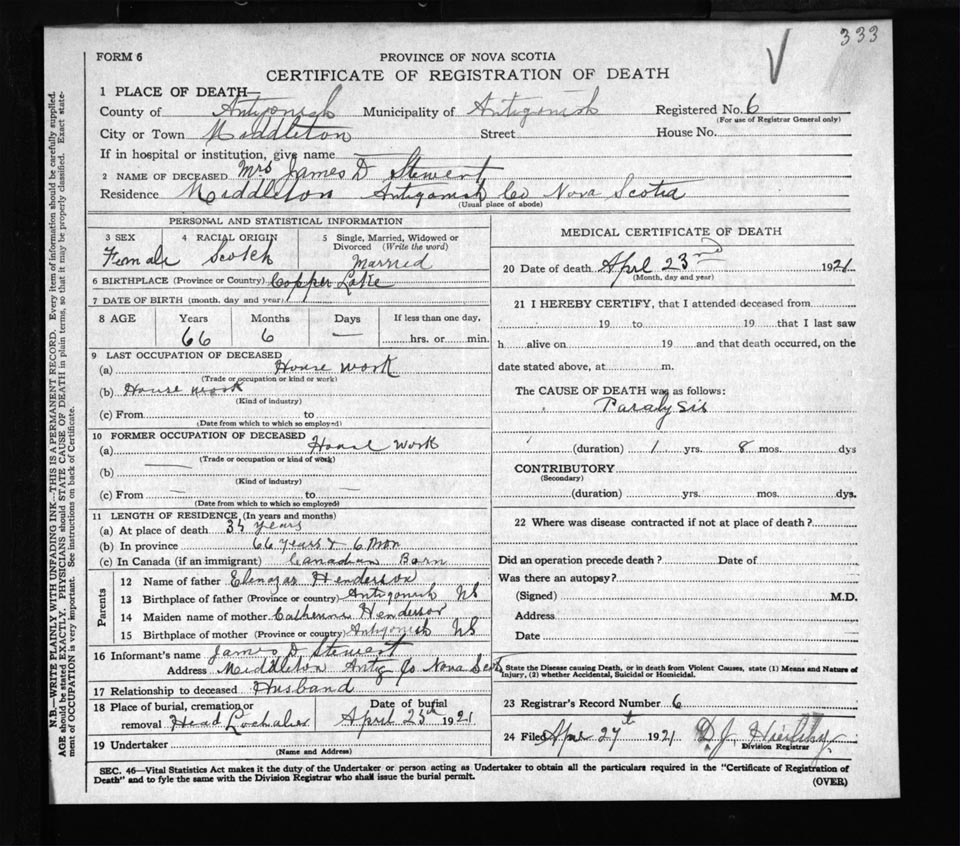 333
FORM 6
PROVINCE OF NOVA SCOTIA
CERTIFICATE OF REGISTRATION OF DEATH
1 PLACE OF DEATH—
County of Antigonish Municipality of Antigonish Registered No. 6
(For use of Registrar General only)
City or Town Middleton Street House No.
If in hospital or institution, give name
2 NAME OF DECEASED Mrs James D Stewert
Residence Middleton Antigonish Co Nova Scotia
(Usual place of abode)
PERSONAL AND STATISTICAL INFORMATION
3 SEX 4 RACIAL ORIGIN 5 Single, Married, Widowed or
Divorced (Write the word)
Female Scotch Married
6 BIRTHPLACE (Province or Country) Copper Lake
7 DATE OF BIRTH (month, day and year)
8 AGE Years Months Days If less than one day,
66 6 — hrs. or min.
9 LAST OCCUPATION OF DECEASED
(a) House work
(Trade or occupation or kind or work)
(b) House work
(Kind of industry)
(c) From to
(Date from which to which so employed)
10 FORMER OCCUPATION OF DECEASED
(a) House work
(Trade or occupation or kind of work)
(b) —
(Kind of industry)
(c) From — to —
(Date from which to which so employed)
11 LENGTH OF RESIDENCE (In years and months)
(a) At place of death years
(b) In province 66 years & 6 Mon
(c) In Canada (if an immigrant) Canadian Born
Parents
12 Name of father Henderson
13 Birthplace of father (Province or country) Antigonish NS
14 Maiden name of mother Catherine Henderson
15 Birthplace of mother (Province or country) Antigonish NS
16 Informant's name James D Stewert
Address Middleton Antig Co Nova Scot
17 Relationship to deceased Husband
18 Place of burial, cremation or Date of burial
removal Head Lochaber April 25th 1921
19 Undertaker
(Name and Address)
MEDICAL CERTIFICATE OF DEATH
20 Date of death Aprl 23nd 1921
(Month, day and year)
21 I HEREBY CERTIFY, that I attended deceased from
19 to 19 that I last saw
h alive on 19 and that death occurred, on the
date stated above, at m.
The CAUSE OF DEATH was as follows:
Paralysis
(duration) 1 yrs. 8 mos. dys
CONTRIBUTORY
(Secondary)
(duration) yrs. mos. dys.
22 Where was disease contracted if not at place of death?
Did an operation precede death? Date of
Was there an autopsy?
(Signed) M.D.
Address
Date
State the Disease causing Death, or in death from Violent Causes, state (1) Means and Nature of
Injury, (2) whether Accidental, Suicidal or Homicidal.
23 Registrar's Record Number 6
24 Filed Aprl 27th 1921 D. J.
Division Registrar
SEC. 46—Vital Statistics Act makes it the duty of the Undertaker or person acting as Undertaker to obtain all the particulars required in the "Certificate of Registration of
Death" and to fyle the same with the Division Registrar who shall issue the burial permit.
(OVER)
N.B.—WRITE PLAINLY WITH UNFADING INK—THIS IS A PERMANENT RECORD. Every item of information should be carefully supplied.
AGE should be stated EXACTLY. PHYSICIANS should STATE CAUSE OF DEATH in plain terms, so that it may be properly classified. Exact state-
ment of OCCUPATION is very important. See instructions on back of Certificate.